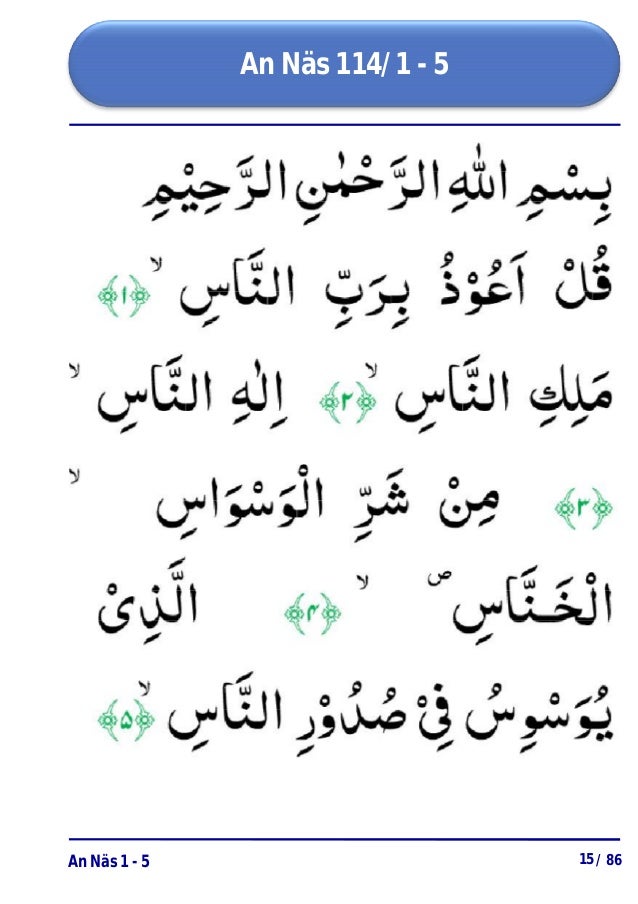 An Näs 114/ 1 - 5
بِسْمِ اللهِ الرَّحْمٰنِ الرَّحِيْمِ
قُلْ اَعُوْذُ بِرَبِّ النَّاسِ ۙ ﴿۱﴾
مَلِكِ النَّاسِ ۙ ﴿۲﴾ اِلٰهِ النَّاسِ ۙ
﴿۳﴾ مِنْ شَرِّ الْوَسْوَاسِ ۙ
الْخَـنَّاسِ ۪ ۙ ﴿۴﴾ الَّذِىْ
يُوَسْوِسُ فِىْ صُدُوْرِ النَّاسِ ۙ ﴿۵﴾
An Näs 1 - 5 15 / 86